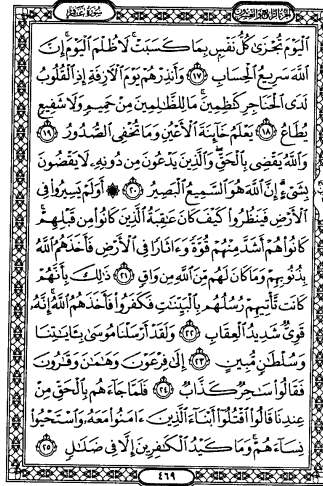 الجزء الرابع والعشرون
سورة غافر
ٱلۡيَوۡمَ تُجۡزَىٰ كُلُّ نَفۡسِۭ بِمَا كَسَبَتۡۚ لَا ظُلۡمَ ٱلۡيَوۡمَۚ إِنَّ
ٱللَّهَ سَرِيعُ ٱلۡحِسَابِ ١٧ وَأَنذِرۡهُمۡ يَوۡمَ ٱلۡأٓزِفَةِ إِذِ ٱلۡقُلُوبُ
لَدَى ٱلۡحَنَاجِرِ كَٰظِمِينَۚ مَا لِلظَّٰلِمِينَ مِنۡ حَمِيمٖ وَلَا شَفِيعٖ
يُطَاعُ ١٨ يَعۡلَمُ خَآئِنَةَ ٱلۡأَعۡيُنِ وَمَا تُخۡفِي ٱلصُّدُورُ ١٩
وَٱللَّهُ يَقۡضِي بِٱلۡحَقِّۖ وَٱلَّذِينَ يَدۡعُونَ مِن دُونِهِۦ لَا يَقۡضُونَ
بِشَيۡءٍۗ إِنَّ ٱللَّهَ هُوَ ٱلسَّمِيعُ ٱلۡبَصِيرُ ٢٠ ۞ أَوَلَمۡ يَسِيرُواْ فِي
ٱلۡأَرۡضِ فَيَنظُرُواْ كَيۡفَ كَانَ عَٰقِبَةُ ٱلَّذِينَ كَانُواْ مِن قَبۡلِهِمۡۚ
كَانُواْ هُمۡ أَشَدَّ مِنۡهُمۡ قُوَّةٗ وَءَاثَارٗا فِي ٱلۡأَرۡضِ فَأَخَذَهُمُ ٱللَّهُ
بِذُنُوبِهِمۡ وَمَا كَانَ لَهُم مِّنَ ٱللَّهِ مِن وَاقٖ ٢١ ذَٰلِكَ بِأَنَّهُمۡ
كَانَت تَّأۡتِيهِمۡ رُسُلُهُم بِٱلۡبَيِّنَٰتِ فَكَفَرُواْ فَأَخَذَهُمُ ٱللَّهُۚ إِنَّهُۥ
قَوِيّٞ شَدِيدُ ٱلۡعِقَابِ ٢٢ وَلَقَدۡ أَرۡسَلۡنَا مُوسَىٰ بِـَٔايَٰتِنَا
وَسُلۡطَٰنٖ مُّبِينٍ ٢٣ إِلَىٰ فِرۡعَوۡنَ وَهَٰمَٰنَ وَقَٰرُونَ
فَقَالُواْ سَٰحِرٞ كَذَّابٞ ٢٤ فَلَمَّا جَآءَهُم بِٱلۡحَقِّ مِنۡ
عِندِنَا قَالُواْ ٱقۡتُلُوٓاْ أَبۡنَآءَ ٱلَّذِينَ ءَامَنُواْ مَعَهُۥ وَٱسۡتَحۡيُواْ
نِسَآءَهُمۡۚ وَمَا كَيۡدُ ٱلۡكَٰفِرِينَ إِلَّا فِي ضَلَٰلٖ ٢٥
٤٦٩